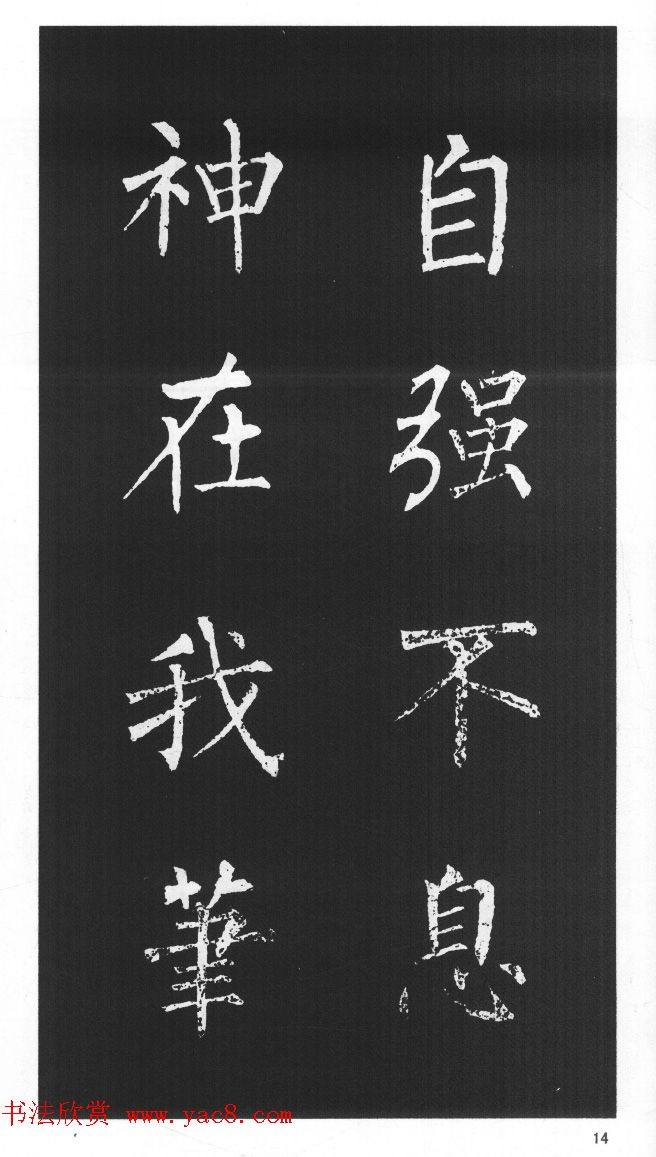 自强不息
神在我筆
书法欣赏 www.yac8.com
14